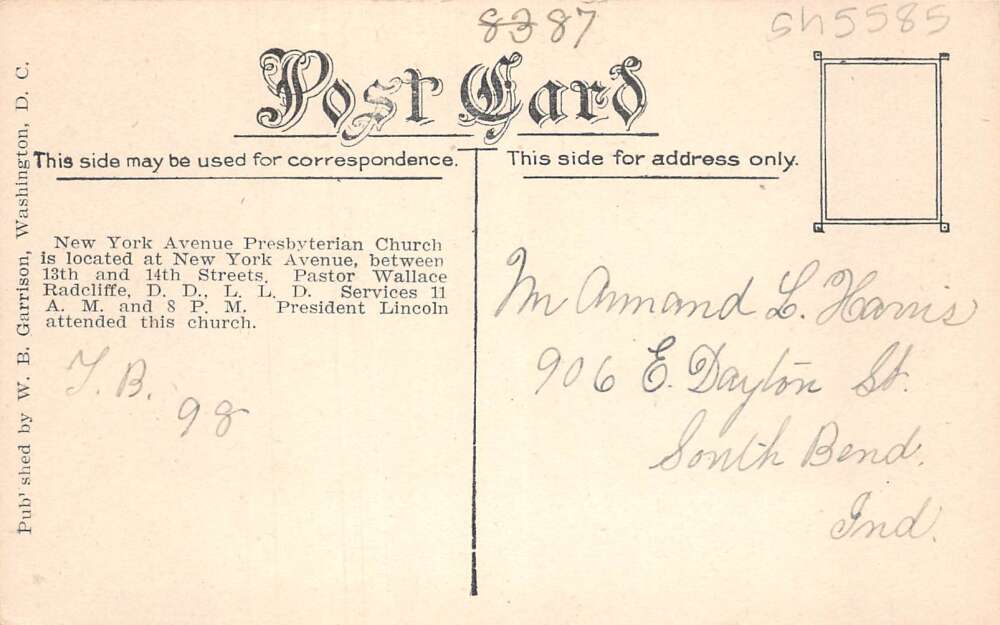 8387
sh5585
Post Card
This side may be used for correspondence.
This side for address only.
New York Avenue Presbyterian Church
is located at New York Avenue, between
13th and 14th Streets. Pastor Wallace
Radcliffe, D. D., L. L. D. Services 11
A. M. and 8 P. M. President Lincoln
attended this church.
T. B.
98
Mr Armand L. Harris
906 E. Dayton St.
South Bend.
Ind.
Pub' shed by W. B. Garrison, Washington, D. C.